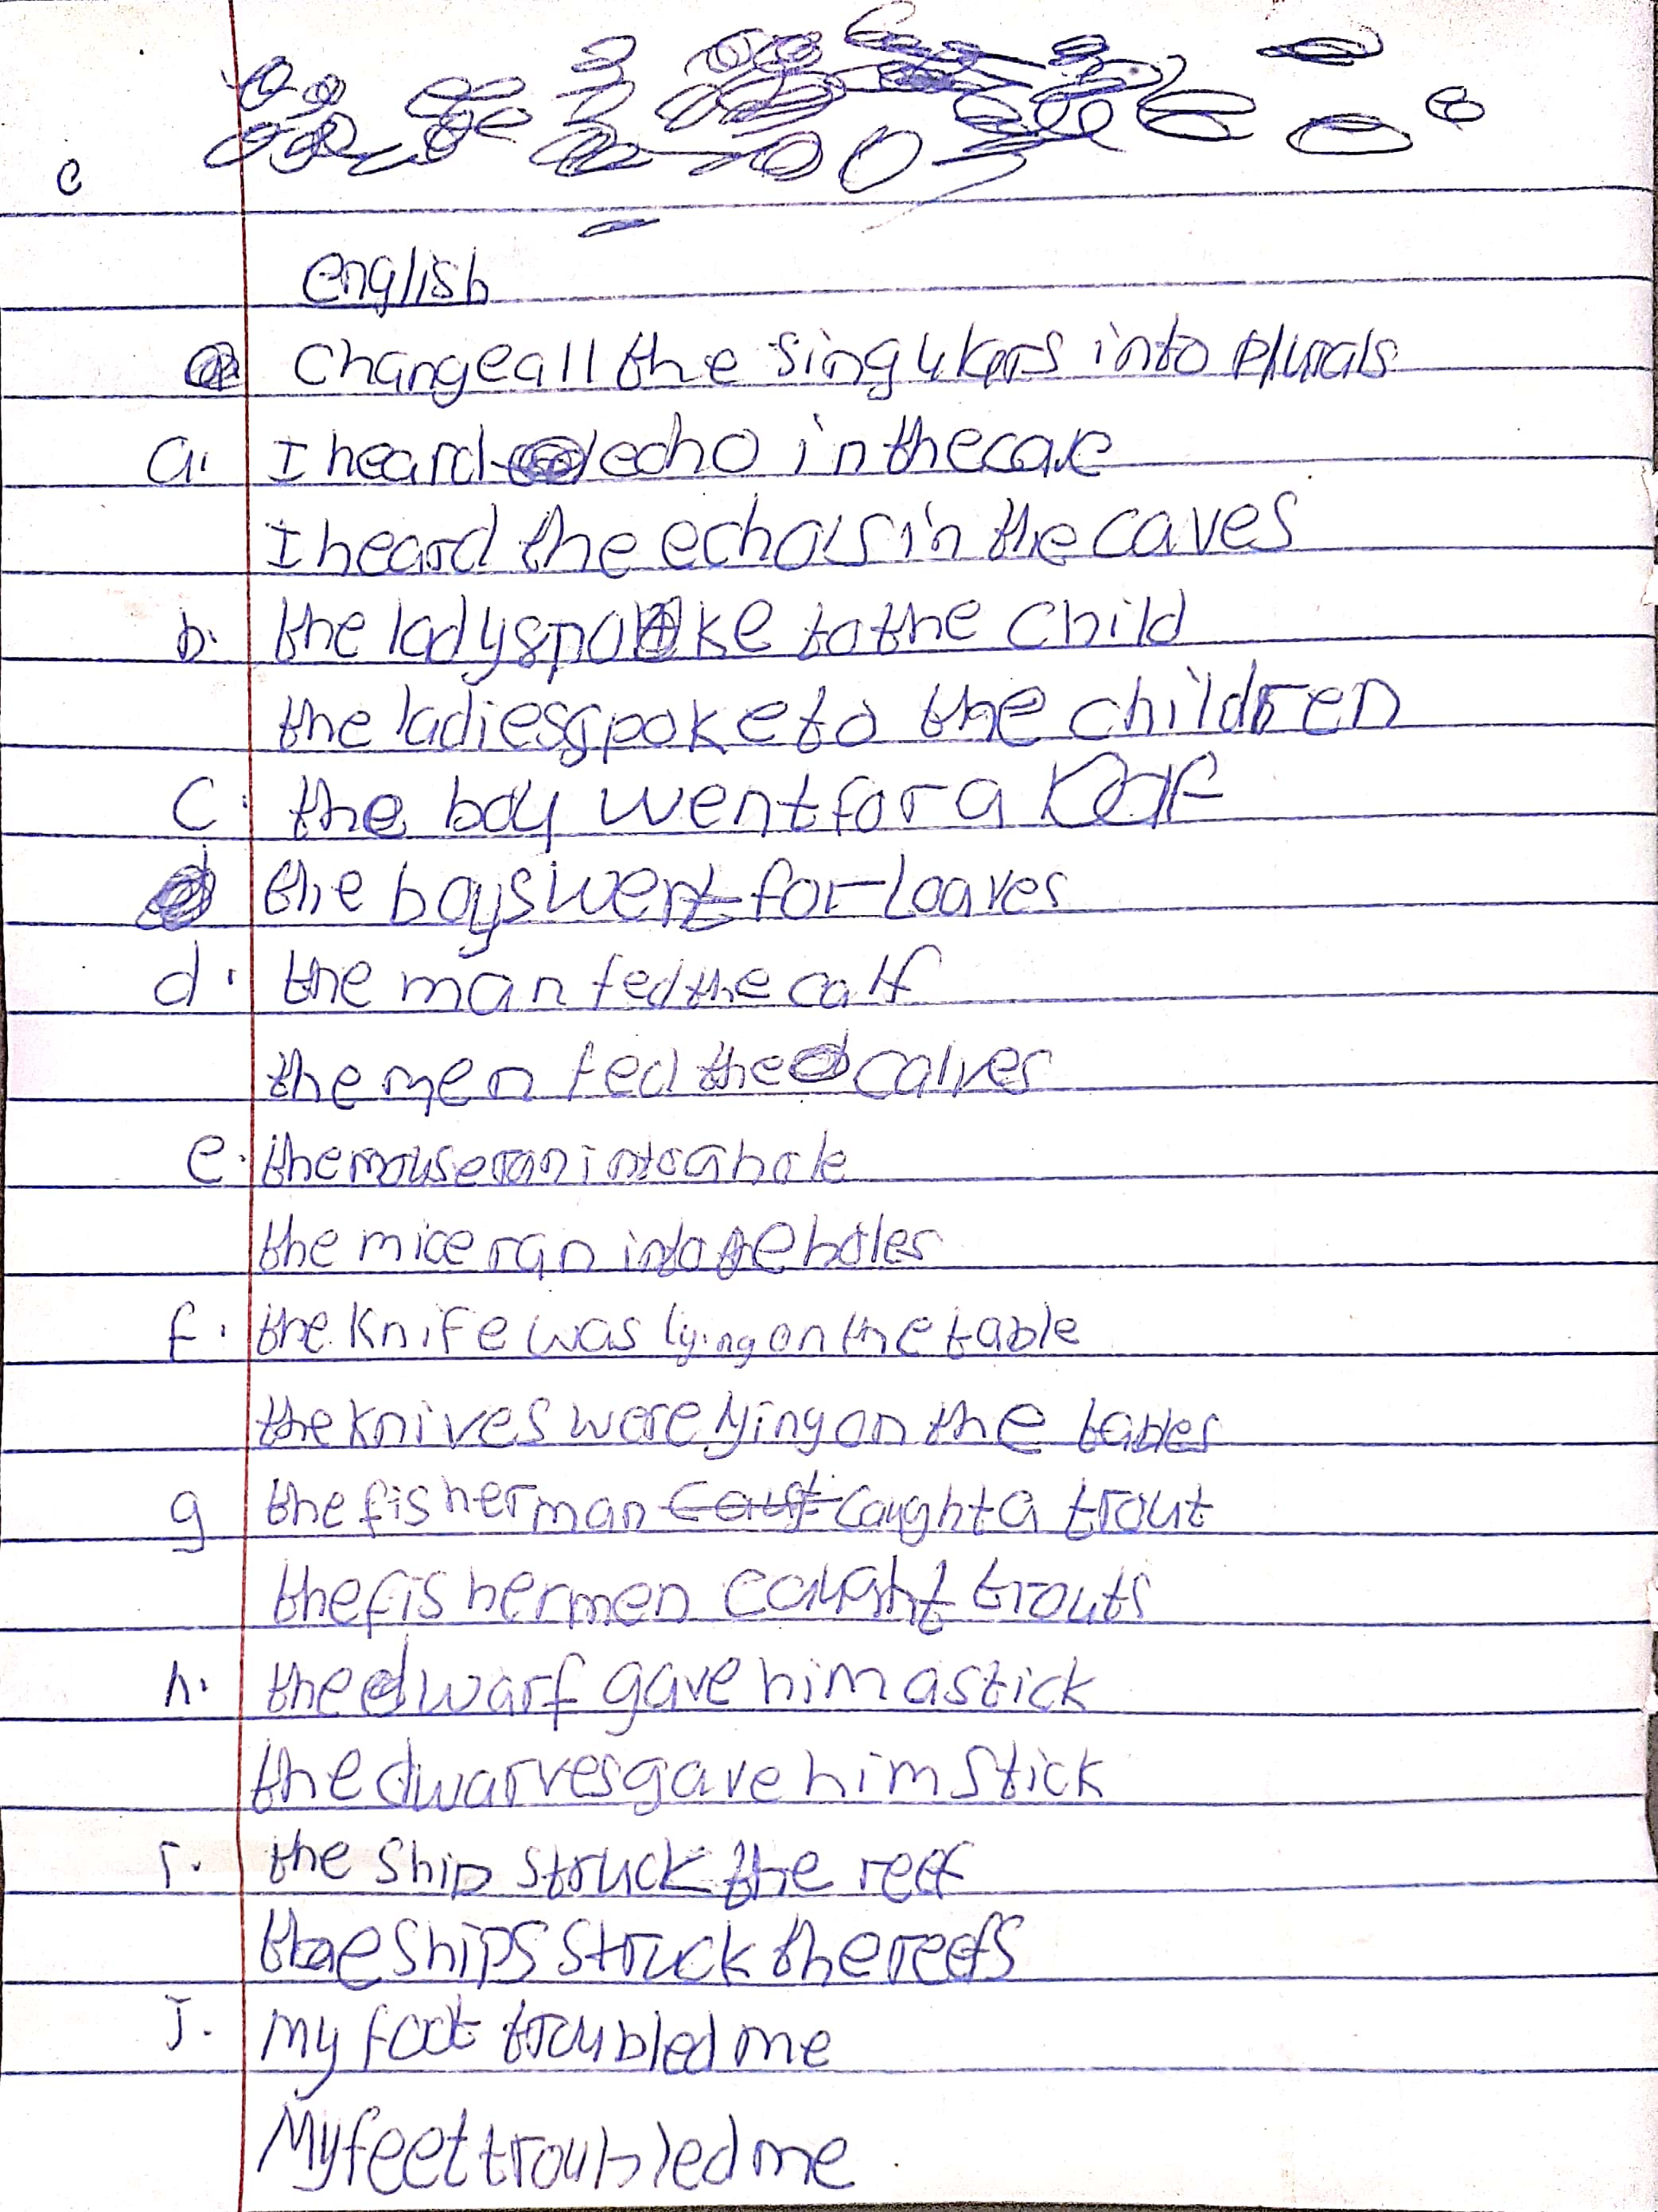 english
change all the singulars into plurals
a. I heard echo in the cave
I heard the echos in the caves
b. the lady spoke to the child
the ladies spoke to the children
c. the boy went for a loaf
the boys went for loaves
d. the man fed the calf
the men fed the calves
e. the mouse ran into a hole
the mice ran into the holes
f. the knife was lying on the table
the knives were lying on the tables
g the fisherman caught a trout
the fishermen caught trouts
h. the dwarf gave him a stick
the dwarves gave him stick
i. the ship struck the reef
the ships struck the reefs
j. my foot troubled me
My feet troubled me